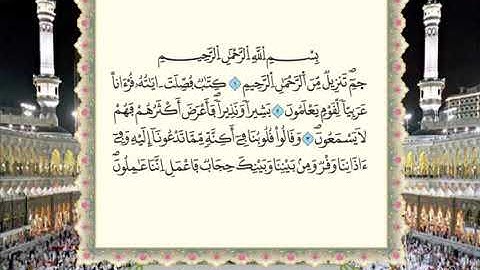 بِسْمِ اللَّهِ الرَّحْمَٰنِ الرَّحِيمِ
حمٓ تَنزِيلٌ مِّنَ الرَّحْمَٰنِ الرَّحِيمِ ١ كِتَٰبٌ فُصِّلَتْ ءَايَٰتُهُۥ قُرْءَاناً
عَرَبِيّاً لِّقَوْمٍ يَعْلَمُونَ ٢ بَشِيراً وَنَذِيراً فَأَعْرَضَ أَكْثَرُهُمْ فَهُمْ
لَا يَسْمَعُونَ ٣ وَقَالُواْ قُلُوبُنَا فِىٓ أَكِنَّةٍ مِّمَّا تَدْعُونَآ إِلَيْهِ وَفِىٓ
ءَاذَانِنَا وَقْرٌ وَمِنۢ بَيْنِنَا وَبَيْنِكَ حِجَابٌ فَاعْمَلْ إِنَّنَا عَٰمِلُونَ